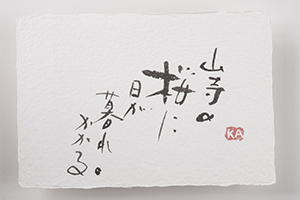 山寺の
桜に
日が
暮れ
かかる。
KA